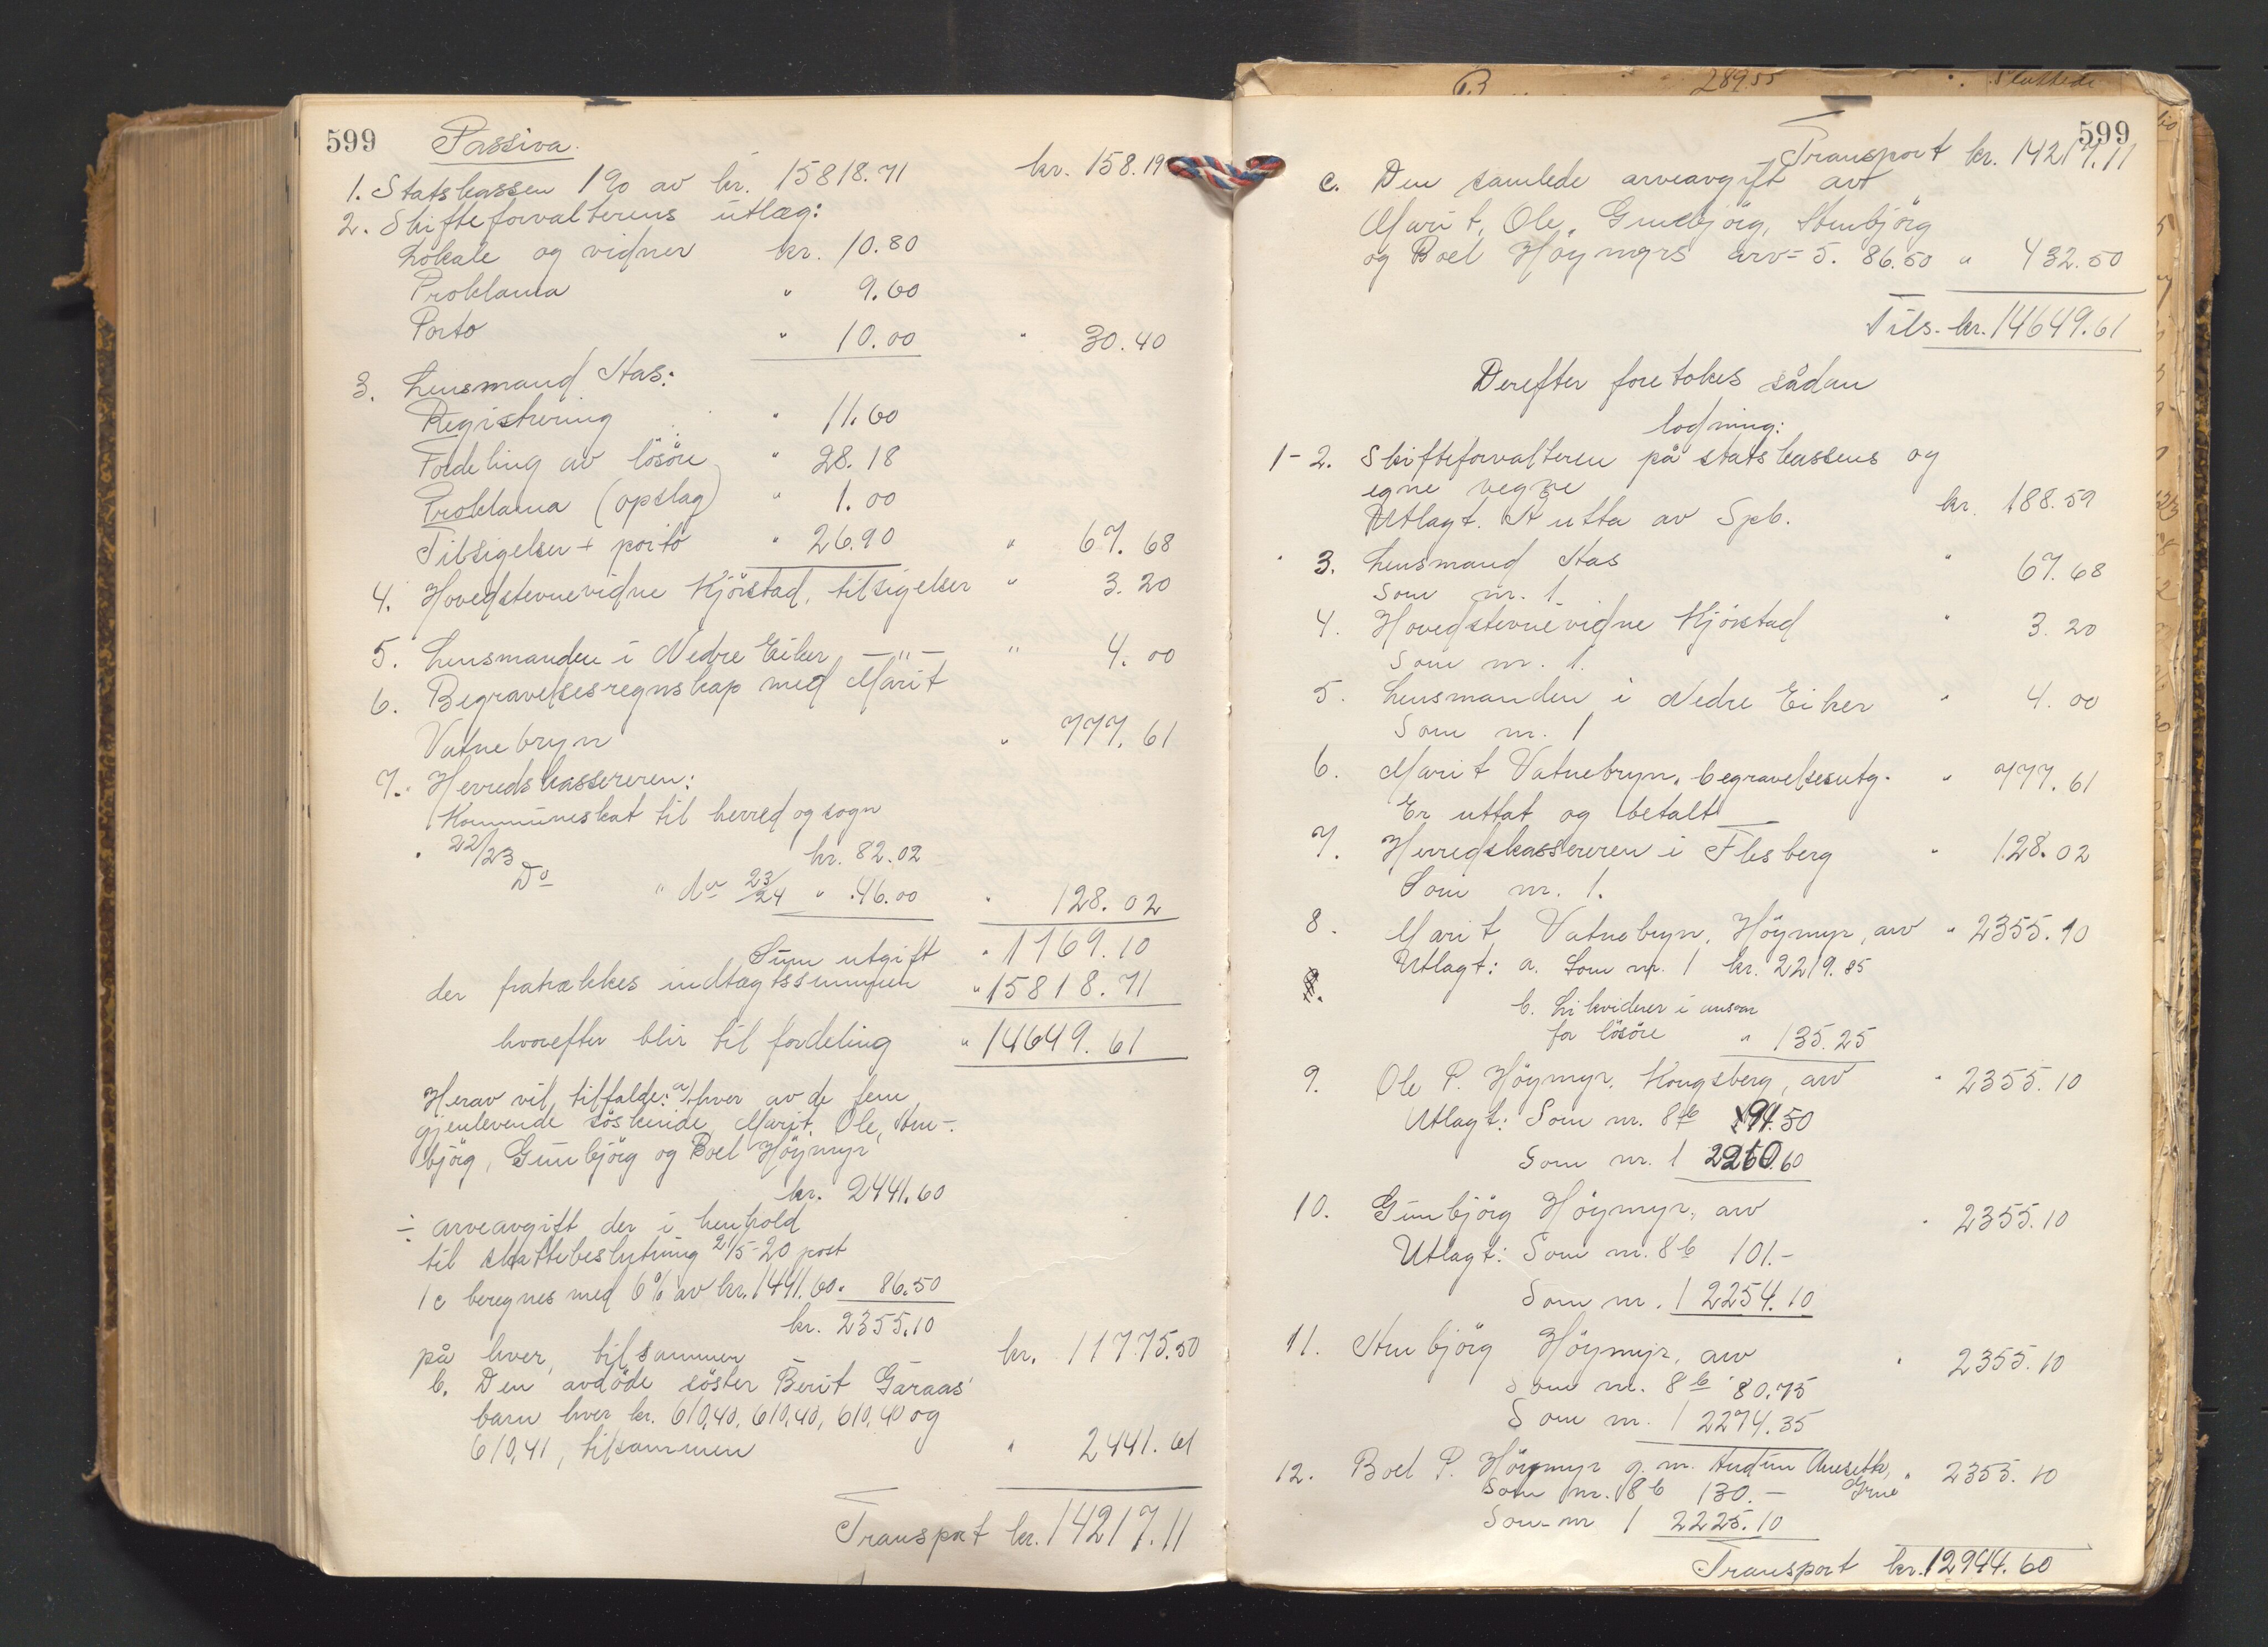 599 Passiva.
1. Statskassen 1% av kr. 15818.71 kr. 158.19
2. Skifteforvalterens utlæg:
Lokale og vidner kr. 10.80
Proklama " 9.60
Porto " 10.00 " 30.40
3. Lensmand Aas:
Registrering " 11.60
Fordeling av løsøre " 28.18
Proklama (opslag) " 1.00
Tilsigelser + porto " 26.90 " 67.68
4. Hovedstevnevidne Kjørstad, tilsigelser " 3.20
5. Lensmanden i Nedre Eiker —"— " 4.00
6. Begravelsesregnskap med Marit
Vatnebryn " 777.61
7. Herredskassereren:
Kommuneskat til herred og sogn
22/23 kr. 82.02
Do " do 23/24 " 46.00 " 128.02
Sum utgift " 1169.10
der fratrækkes indtægtssummen " 15818.71
hvorefter blir til fordeling " 14649.61
Herav vil tilfalde: a/ hver av de fem
gjenlevende søskende, Marit, Ole, Am-
bjørg, Gunbjørg og Boel Høymyr
kr. 2441.60
÷ arveavgift der i henhold
til skattebeslutning 21/5-20 post
1 c beregnes med 6% av kr. 1441.60 " 86.50
kr. 2355.10
på hver, tilsammen kr. 11775.50
b. Den avdøde søster Berit Garaas'
barn hver kr. 610,40, 610,40, 610,40 og
610,41, tilsammen " 2441.61
Transport kr. 14217.11
28955 Sluttede
599
Transport kr. 14217.11
c. Den samlede arveavgift av
Marit, Ole, Gunbjørg, Ambjørg
og Boel Høymyrs arv = 5. 86.50 " 432.50
Tils. kr. 14649.61
Derefter foretokes sådan
lodning:
1-2. Skifteforvalteren på statskassens og
egne vegne kr. 188.59
Utlagt. At utta av Spb.
3. Lensmand Aas " 67.68
Som nr. 1
4. Hovedstevnevidne Kjørstad " 3.20
Som nr. 1.
5. Lensmanden i Nedre Eiker " 4.00
Som nr. 1
6. Marit Vatnebryn, begravelsesutg. " 777.61
Er uttat og betalt
7. Herredskassereren i Flesberg " 128.02
Som nr. 1.
8. Marit Vatnebryn, Høymyr, arv " 2355.10
Utlagt: a. Som nr. 1 kr. 2219.85
b. Likviderer i ansvar
for løsøre " 135.25
9. Ole P. Høymyr, Kongsberg, arv " 2355.10
Utlagt: Som nr. 8 b 94.50
Som nr. 1 2260.60
10. Gunbjørg Høymyr, arv " 2355.10
Utlagt: Som nr. 8 b 101.-
Som nr. 1 2254.10
11. Ambjørg Høymyr, arv " 2355.10
Som nr. 8 b 80.75
Som nr. 1 2274.35
12. Boel P. Høymyr g. m. Audun " 2355.10
Som nr. 8 b 130.-
Som nr 1 2225.10
Transport kr. 12944.60